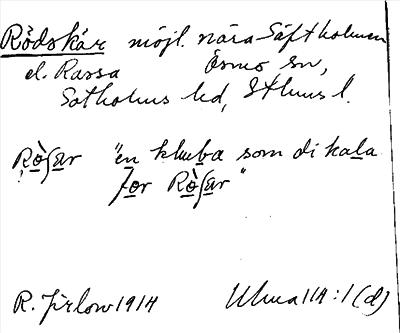 Rödskär möjl. nära Säftholmen
el. Rassa Ösmo sn,
Sotholms hd, Sthlms l.
Rò̱ʃa̱r "e̱n klu̱ba som di ka̱la
fo̱r Rò̱ʃa̱r"
R. Jirlow 1914 Ulma 114:1 (d)